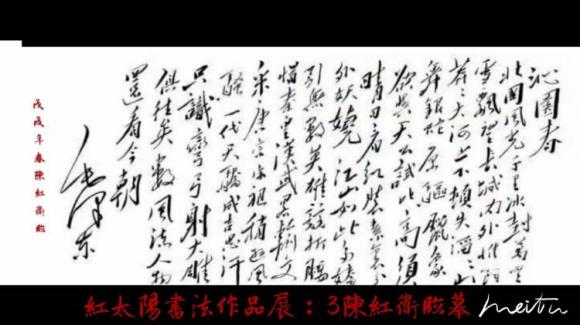 沁園春
北國風光千里冰封萬里
雪飄望長城內外惟餘
莽莽大河上下頓失滔滔山
舞銀蛇原驅臘象
欲與天公試比高須
晴日看紅裝素裹分
外妖嬈 江山如此多嬌
引無數英雄競折腰
惜秦皇漢武略輸文
采唐宗宋祖稍遜風
騷一代天驕成吉思汗
只識彎弓射大雕
俱往矣數風流人物
還看今朝
毛澤東
戊戌年春陳紅衛臨
紅太陽書法作品展：3陳紅衛臨摹
meitu